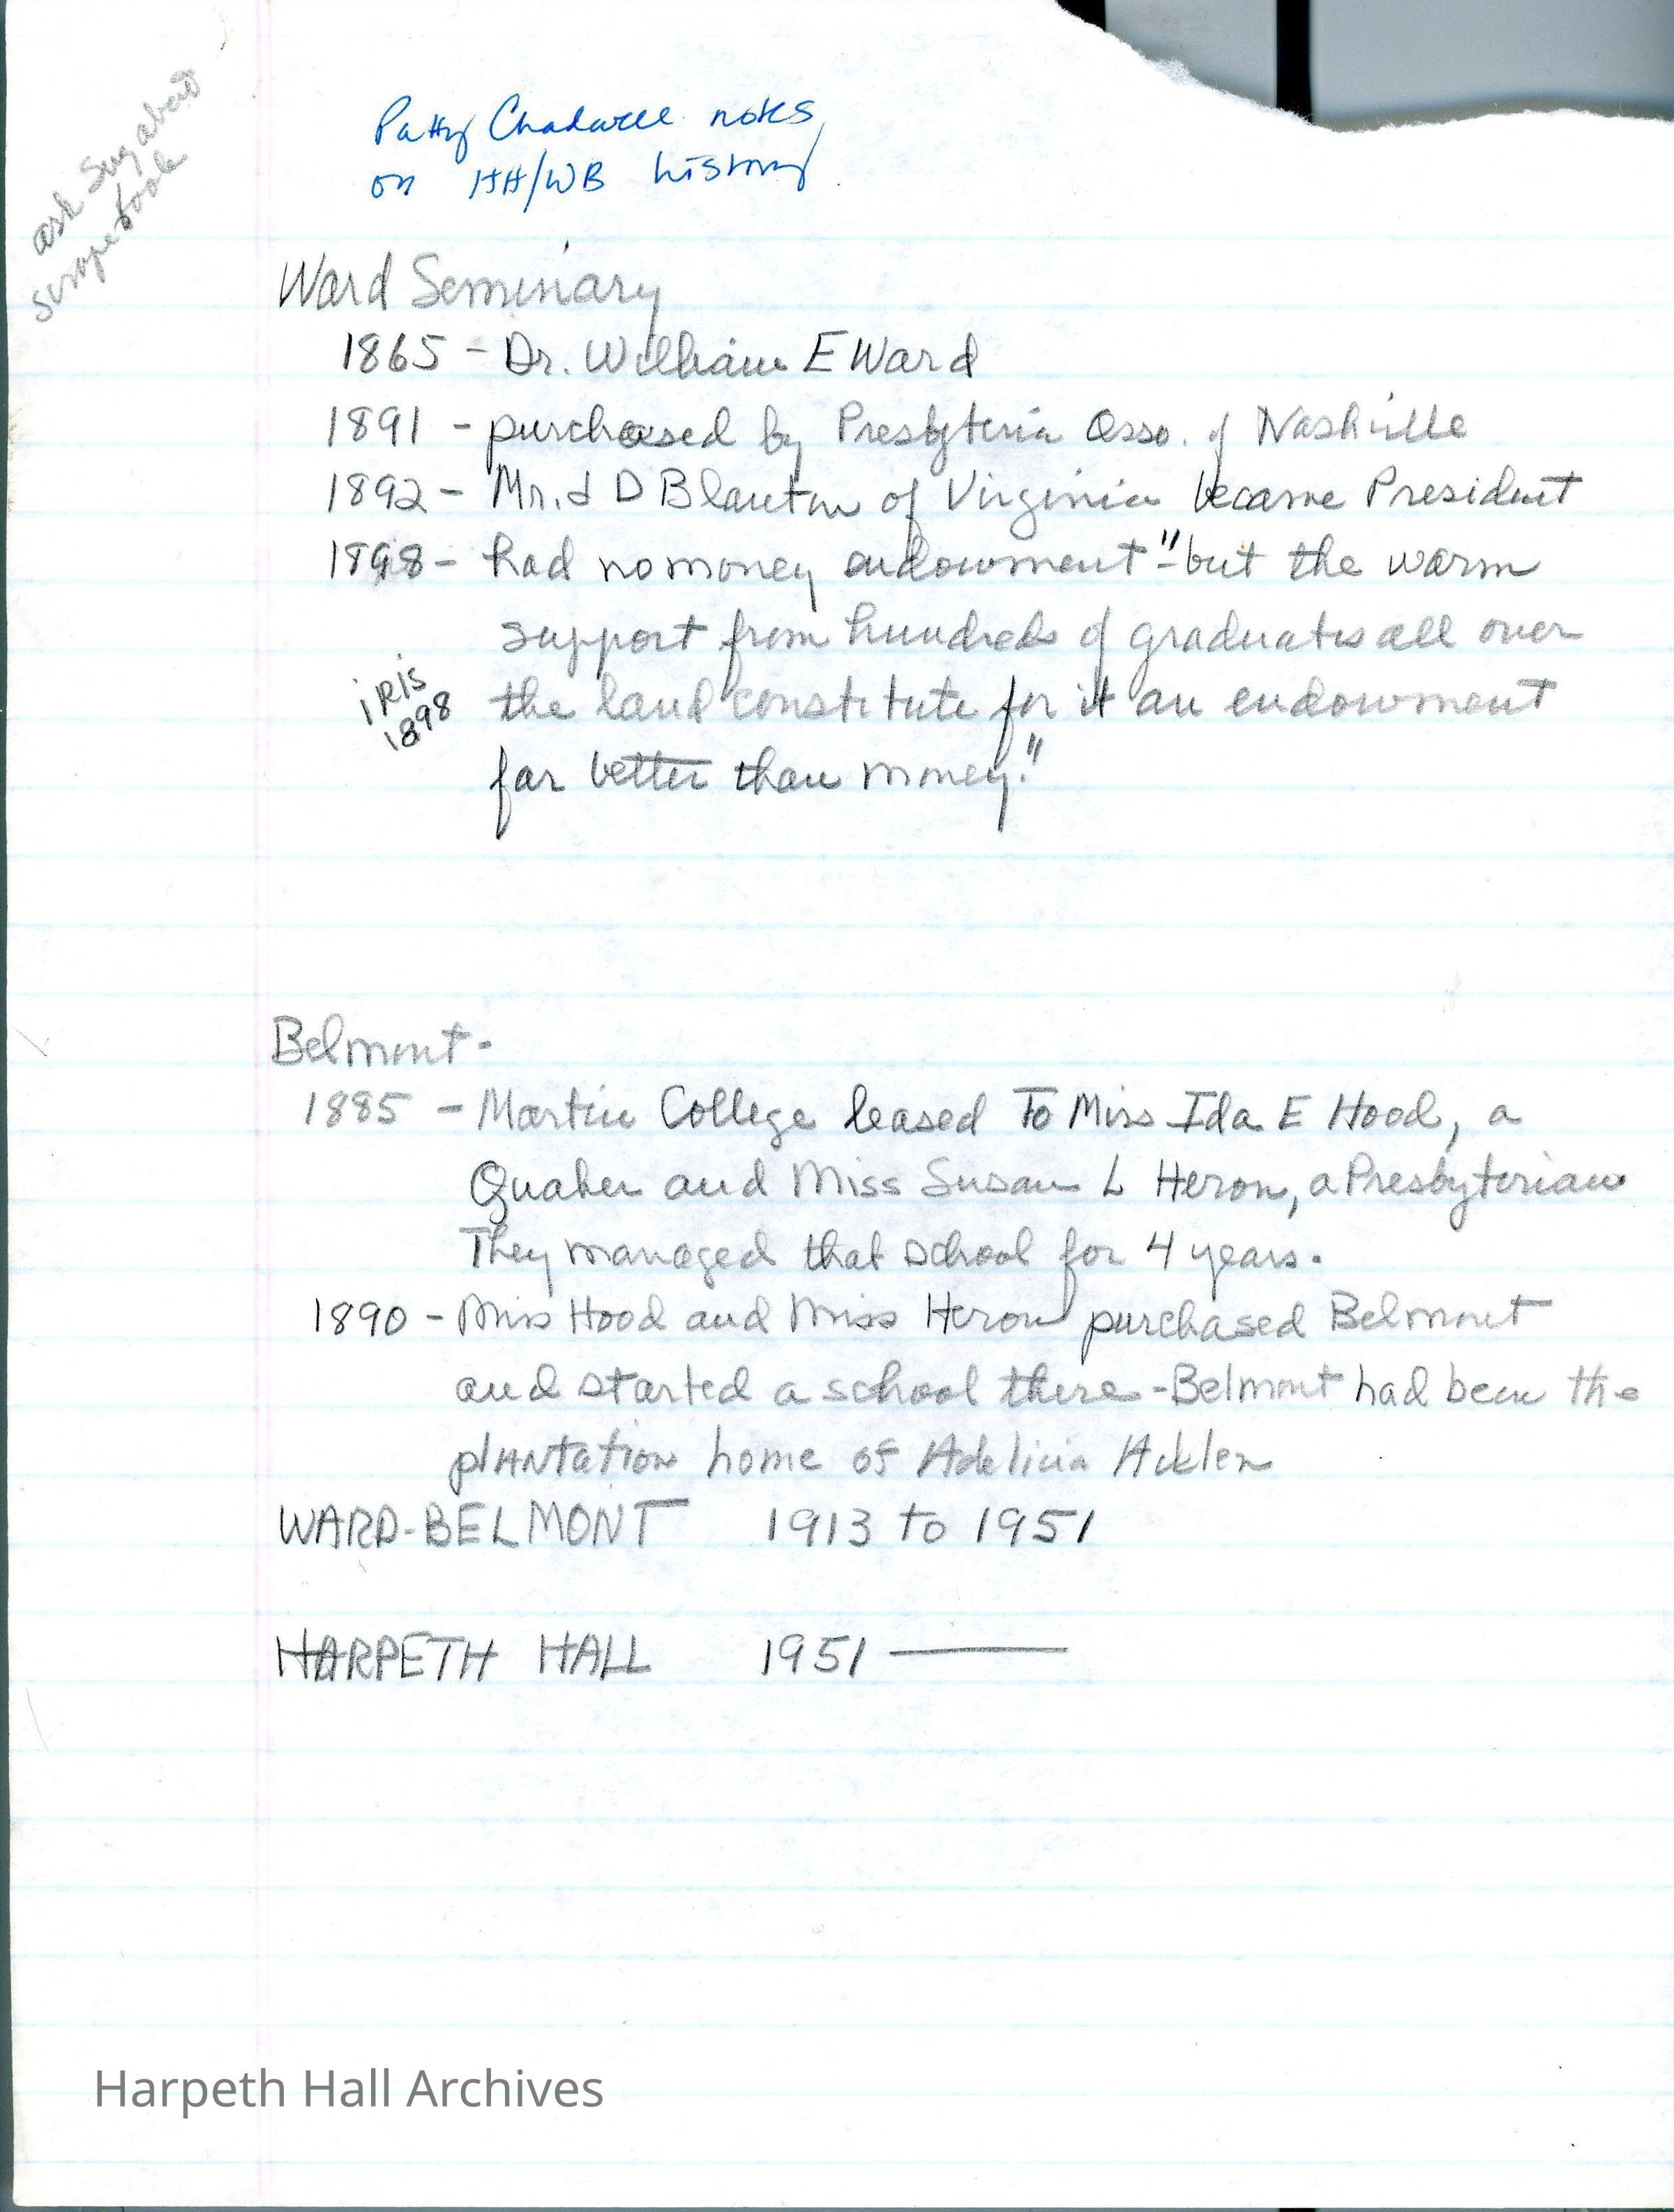 Patty Chadwell notes
on HH/WB history
ask Sug about
scrapebook
Ward Seminary
1865 - Dr. William E Ward
1891 - purchased by Presbyteria Asso. of Nashville
1892 - Mr. J D Blanton of Virginia became President
1898 - had no money endowment "-but the warm
support from hundreds of graduates all over
iRiS
1898
the land constitute for it an endowment
far better than money."
Belmont-
1885 - Martin College leased To Miss Ida E Hood, a
Quaker and Miss Susan L Heron, a Presbyterian
They managed that school for 4 years.
1890 - Miss Hood and Miss Heron purchased Belmont
and started a school there - Belmont had been the
plantation home of Adelicia Acklen
WARD-BELMONT 1913 to 1951
HARPETH HALL 1951 —
Harpeth Hall Archives